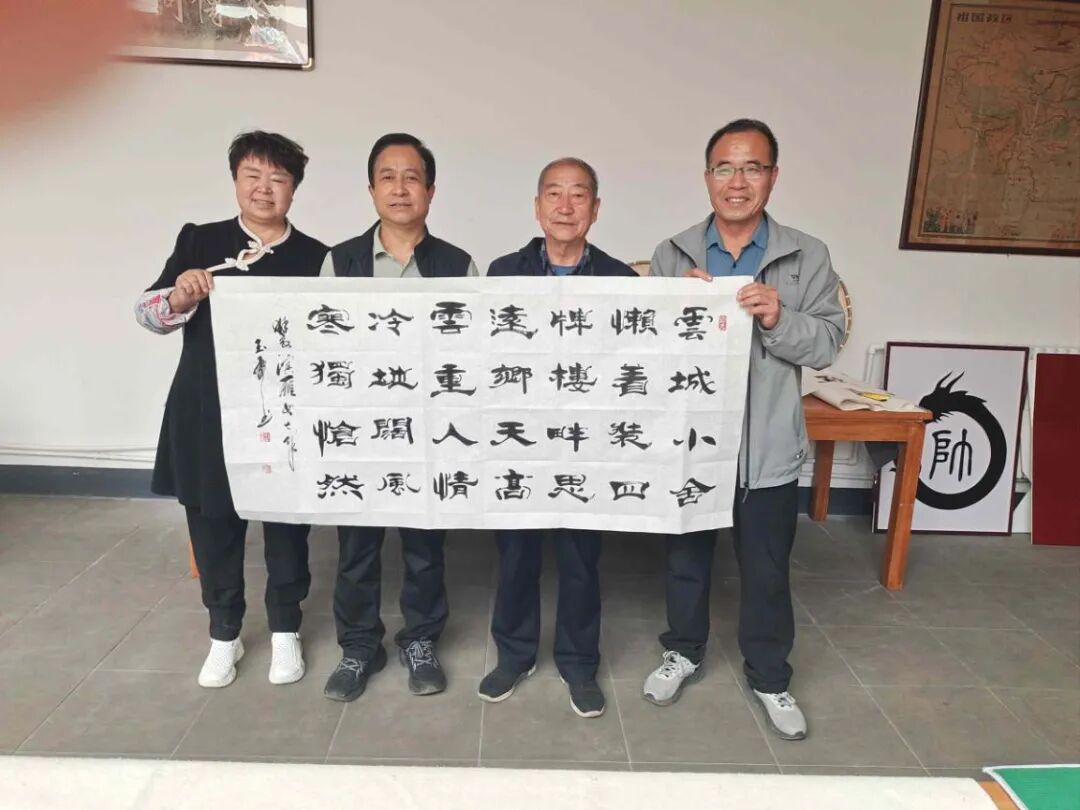 雲城小舍
懶着装四
牌樓畔思
遠鄉天高
雲重人情
冷地闊風
寒獨愴然
祖国政区
帥